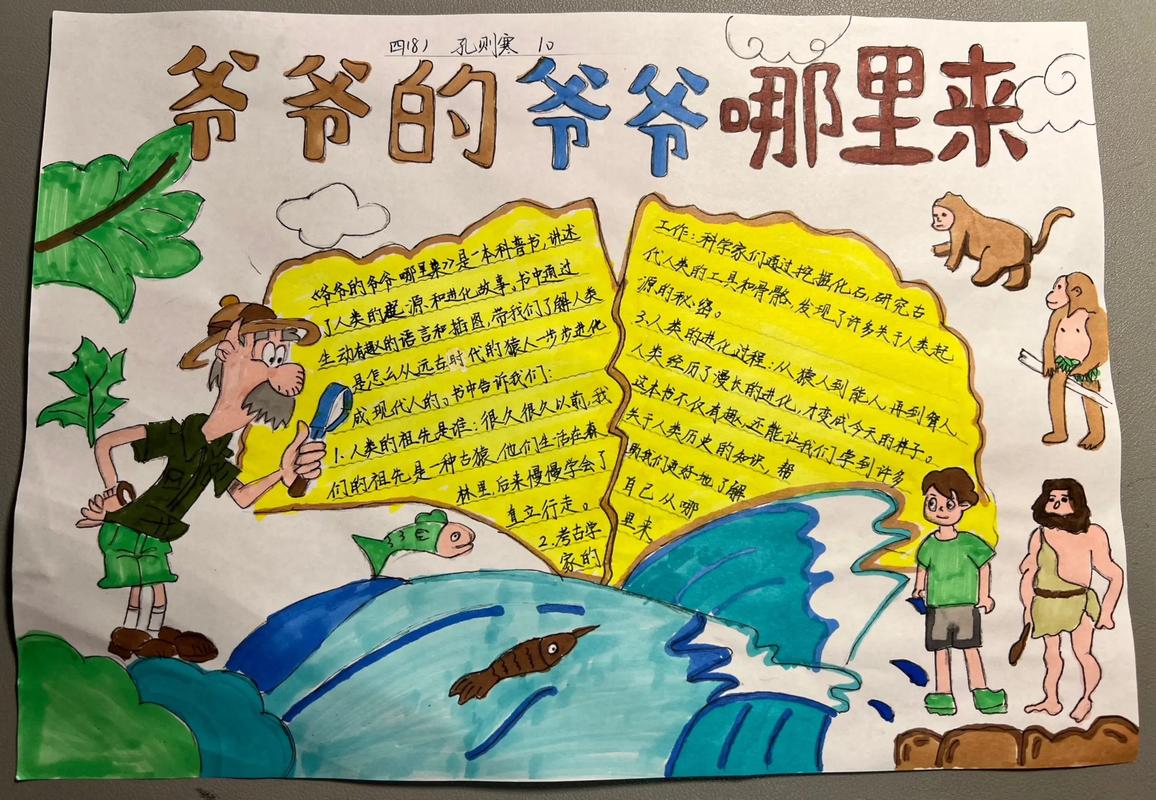 四(8) 孔则寒 10
爷爷的爷爷哪里来
《爷爷的爷爷哪里来》是一本科普书,讲述
了人类的起源和进化故事。书中通过
生动有趣的语言和插图,带我们了解人类
是怎么从远古时代的猿人一步步进化
成现代人的。书中告诉我们:
1.人类的祖先是谁:很久很久以前,我
们的祖先是一种古猿,他们生活在森
林里,后来慢慢学会了
直立行走。
2.考古学
家的
工作:科学家们通过挖掘化石,研究古
代人类的工具和骨骼,发现了许多关于人类起
源的秘密。
3.人类的进化过程:从猿人到能人,再到智人,
人类经历了漫长的进化,才变成今天的样子。
这本书不仅有趣,还能让我们学到许多
关于人类历史的知识,帮
助我们更好地了解
自己从哪
里来